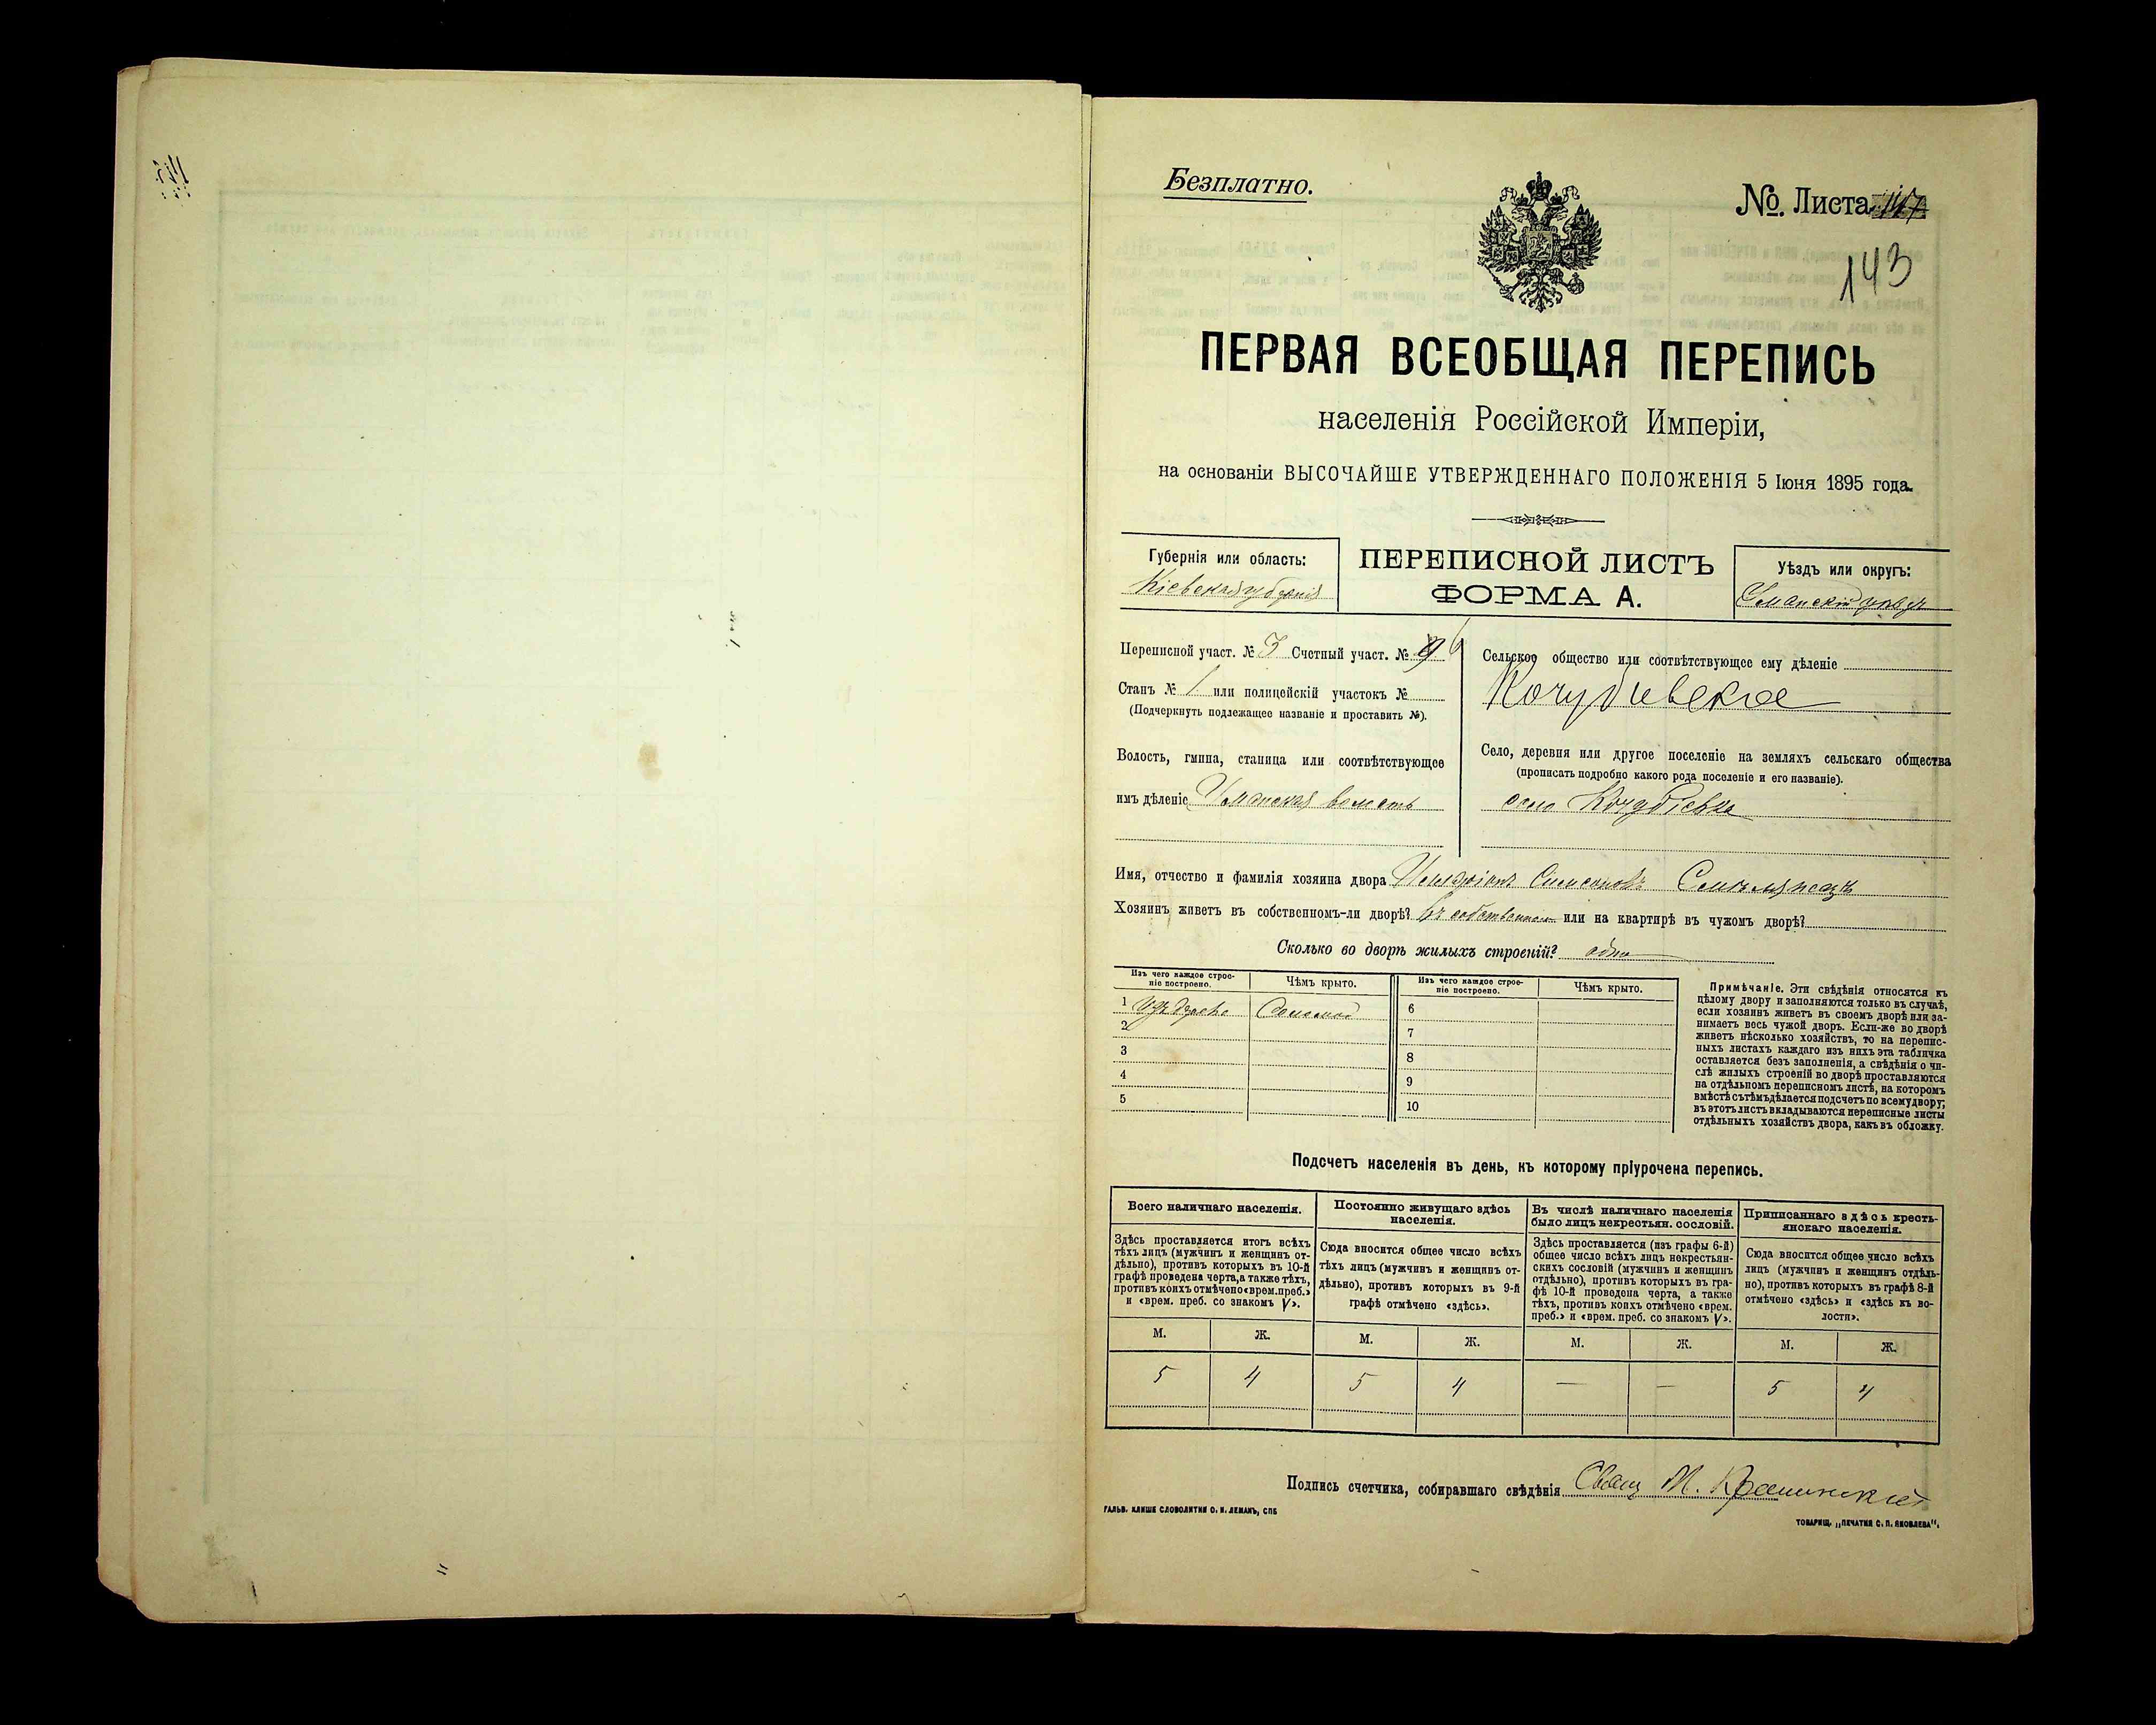 Безплатно.
№. Листа 117
143
ПЕРВАЯ ВСЕОБЩАЯ ПЕРЕПИСЬ
населенія Россійской Имперіи,
на основаніи ВЫСОЧАЙШЕ УТВЕРЖДЕННАГО ПОЛОЖЕНІЯ 5 Іюня 1895 года.
Губернія или область:
Кіевская губернія
ПЕРЕПИСНОЙ ЛИСТЪ
ФОРМА А.
Уѣздъ или округъ:
Уманскій уѣздъ
Переписной участ. № 3 Счетный участ. № 6
Станъ № 1 или полицейскій участокъ №
(Подчеркнуть подлежащее названіе и проставить №).
Волость, гмина, станица или соотвѣтствующее
имъ дѣленіе Уманская волость
Сельское общество или соотвѣтствующее ему дѣленіе
Кочубіевское
Село, деревня или другое поселеніе на земляхъ сельскаго общества
(прописать подробно какого рода поселеніе и его названіе).
село Кочубіевка
Имя, отчество и фамилія хозяина двора
Хозяинъ живетъ въ собственномъ-ли дворѣ? въ собственном или на квартирѣ въ чужомъ дворѣ?
Сколько во дворѣ жилыхъ строеній? одно
Изъ чего каждое строе-
ніе построено.
Чѣмъ крыто.
Изъ чего каждое строе-
ніе построено.
Чѣмъ крыто.
1 Изъ дерева Соломой
2
3
4
5
6
7
8
9
10
Примѣчаніе. Эти свѣдѣнія относятся къ
цѣлому двору и заполняются только въ случаѣ,
если хозяинъ живетъ въ своемъ дворѣ или за-
нимаетъ весь чужой дворъ. Если-же во дворѣ
живетъ нѣсколько хозяйствъ, то на перепис-
ныхъ листахъ каждаго изъ нихъ эта табличка
оставляется безъ заполненія, а свѣдѣнія о чи-
слѣ жилыхъ строеній во дворѣ проставляются
на отдѣльномъ переписномъ листѣ, на которомъ
вмѣстѣ съ тѣмъ дѣлается подсчетъ по всему двору;
въ этотъ листъ вкладываются переписные листы
отдѣльныхъ хозяйствъ двора, какъ въ обложку.
Подсчетъ населенія въ день, къ которому пріурочена перепись.
Всего наличнаго населенія.
Здѣсь проставляется итогъ всѣхъ
тѣхъ лицъ (мужчинъ и женщинъ от-
дѣльно), противъ которыхъ въ 10-й
графѣ проведена черта, а также тѣхъ,
противъ коихъ отмѣчено «врем. преб.»
и «врем. преб. со знакомъ V».
Постоянно живущаго здѣсь
населенія.
Сюда вносится общее число всѣхъ
тѣхъ лицъ (мужчинъ и женщинъ от-
дѣльно), противъ которыхъ въ 9-й
графѣ отмѣчено «здѣсь».
Въ числѣ наличнаго населенія
было лицъ некрестьян. сословій.
Здѣсь проставляется (изъ графы 6-й)
общее число всѣхъ лицъ некрестьян-
скихъ сословій (мужчинъ и женщинъ
отдѣльно), противъ которыхъ въ гра-
фѣ 10-й проведена черта, а также
тѣхъ, противъ коихъ отмѣчено «врем.
преб.» и «врем. преб. со знакомъ V».
Приписаннаго здѣсь кресть-
янскаго населенія.
Сюда вносится общее число всѣхъ
лицъ (мужчинъ и женщинъ отдѣль-
но), противъ которыхъ въ графѣ 8-й
отмѣчено «здѣсь» и «здѣсь къ во-
лости».
М. Ж. М. Ж. М. Ж. М. Ж.
5 4 5 4 — — 5 4
Подпись счетчика, собиравшаго свѣдѣнія Свящ М.
ГАЛЬВ. КЛИШЕ СЛОВОЛИТНИ О. И. ЛЕМАНЪ, СПБ
ТОВАРИЩ. „ПЕЧАТНЯ С. П. ЯКОВЛЕВА".